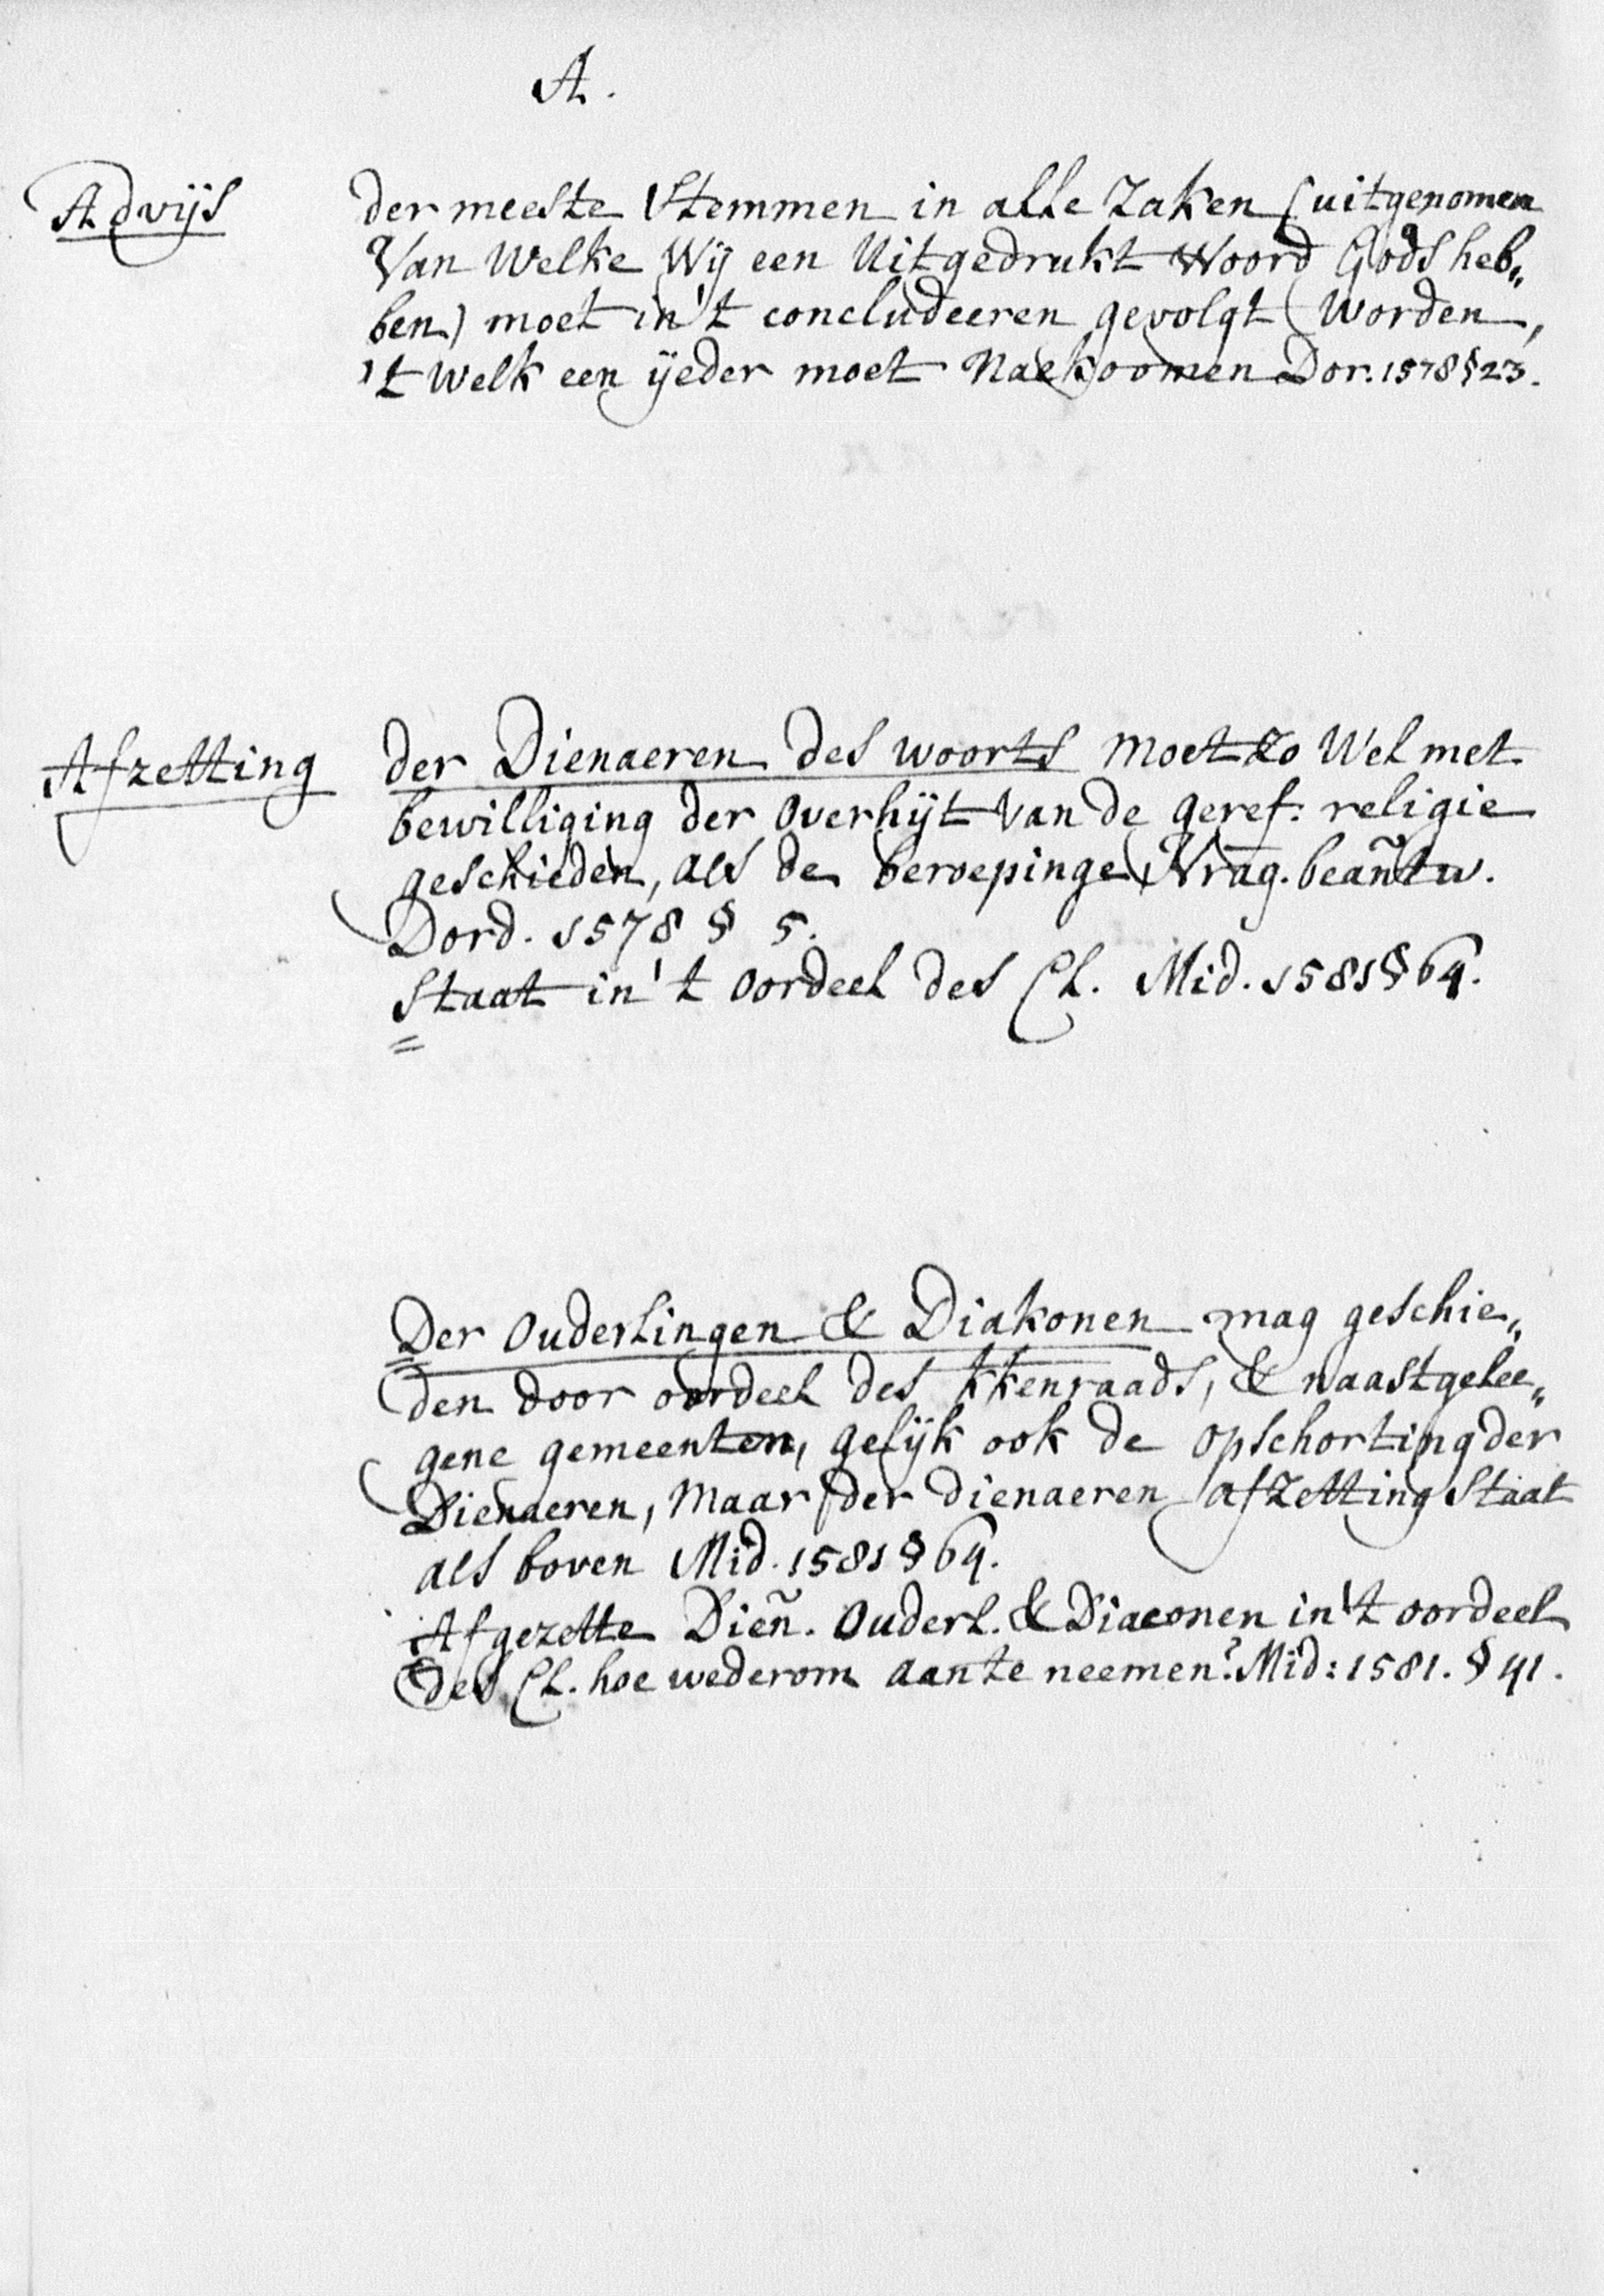 A.
Advijs der meeste stemmen in alle zaken (uitgenomen
Van Welke Wij een Uitgedrukt Woord Gods heb„
ben) moet in 't concludeeren gevolgt Worden,
't Welk een ijeder moet Naekoomen Dor. 1578 § 23.
Afzetting der Dienaeren des woorts moet zo Wel met
bewilliging der Overhijt Van de geref: religie
geschieden, als de beroepinge, Vrag. beañtw.
Dord. 1578 § 5.
Staat in 't Oordeel des Cl. Mid. 1581 § 64.
Der Ouderlingen & Diakonen mag geschie„
den door oordeel des kkenraads, & naastgelee„
gene gemeenten, gelijk ook de opschorting der
Dienaeren, Maar der dienaeren afzetting Staat
als boven Mid. 1581 § 64.
Afgezette Dieñ. Ouderl. & Diaconen in 't oordeel
des Cl. hoe wederom aante neemen? Mid: 1581. § 41.